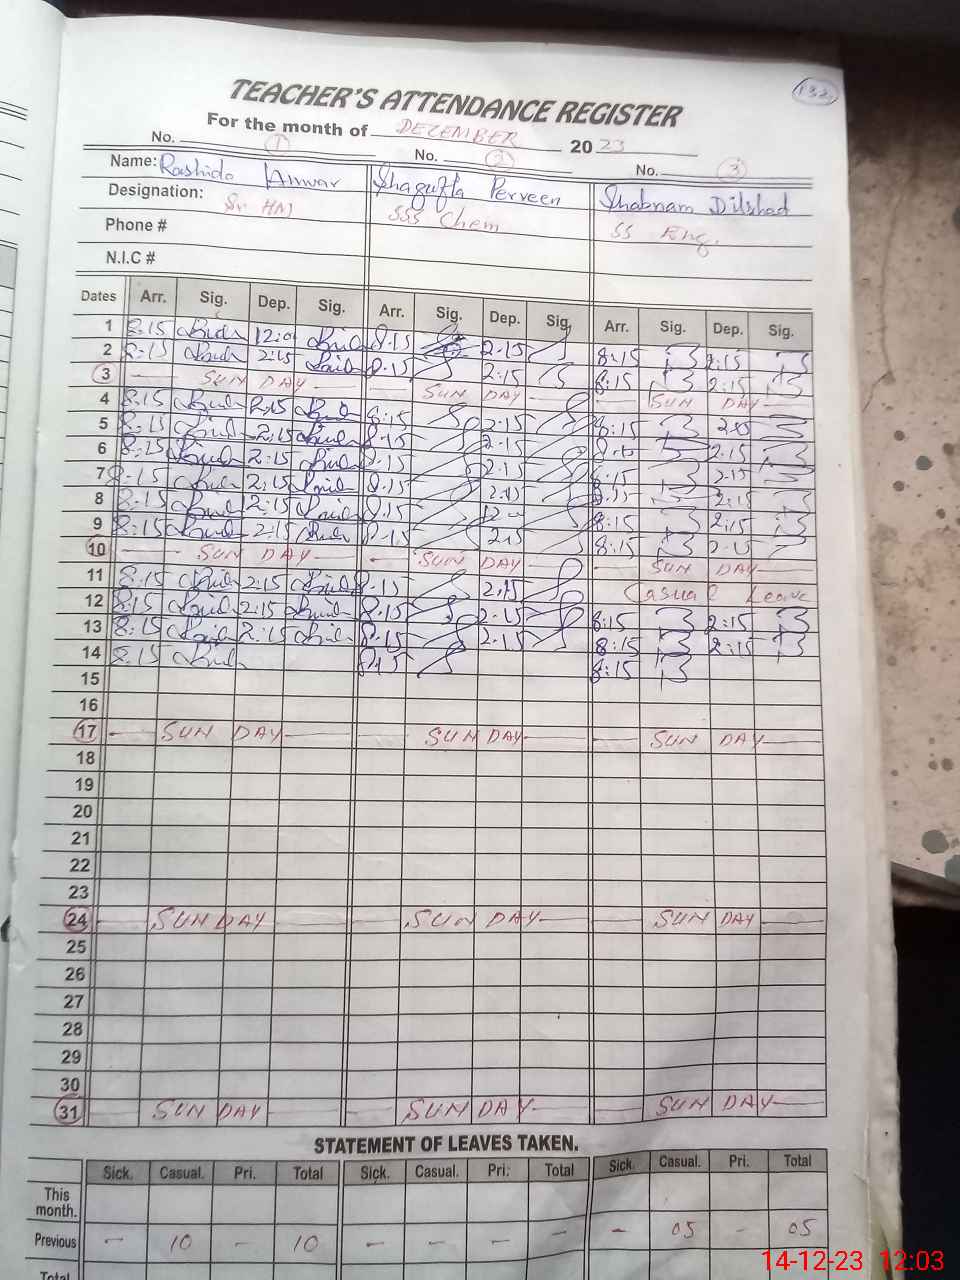 132
TEACHER'S ATTENDANCE REGISTER
For the month of DECEMBER 2023
No. 1 No. 2 No. 3
Name: Rashida Anwar Shagufta Perveen Shabnam Dilshad
Designation: Sr HM SSS Chem SS Eng.
Phone #
N.I.C #
Dates Arr. Sig. Dep. Sig. Arr. Sig. Dep. Sig. Arr. Sig. Dep. Sig.
1 8:15 8:15 2:15 8:15 2:15
2 8:15 2:15 8:15 2:15 8:15 2:15
3 SUN DAY SUN DAY SUN DAY
4 8:15 2:15 8:15 2:15 8:15
5 8:15 2:15 8:15 2:15 2:15
6 8:15 2:15 8:15 2:15 8:15 2:15
7 8:15 2:15 8:15 2:15 8:15 2:15
8 8:15 2:15 8:15 8:15 2:15
9 8:15 2:15 8:15 2:15 8:15 2:15
10 SUN DAY SUN DAY SUN DAY
11 8:15 2:15 8:15 2:15 Casual Leave
12 8:15 2:15 8:15 2:15 8:15 2:15
13 8:15 2:15 8:15 2:15 8:15 2:15
14 8:15 8:15 8:15
15
16
17 SUN DAY SUN DAY SUN DAY
18
19
20
21
22
23
24 SUN DAY SUN DAY SUN DAY
25
26
27
28
29
30
31 SUN DAY SUN DAY SUN DAY
STATEMENT OF LEAVES TAKEN.
Sick. Casual. Pri. Total Sick. Casual. Pri. Total Sick. Casual. Pri. Total
This month.
Previous - 10 - 10 - - - - - 05 - 05
Total
14-12-23 12:03